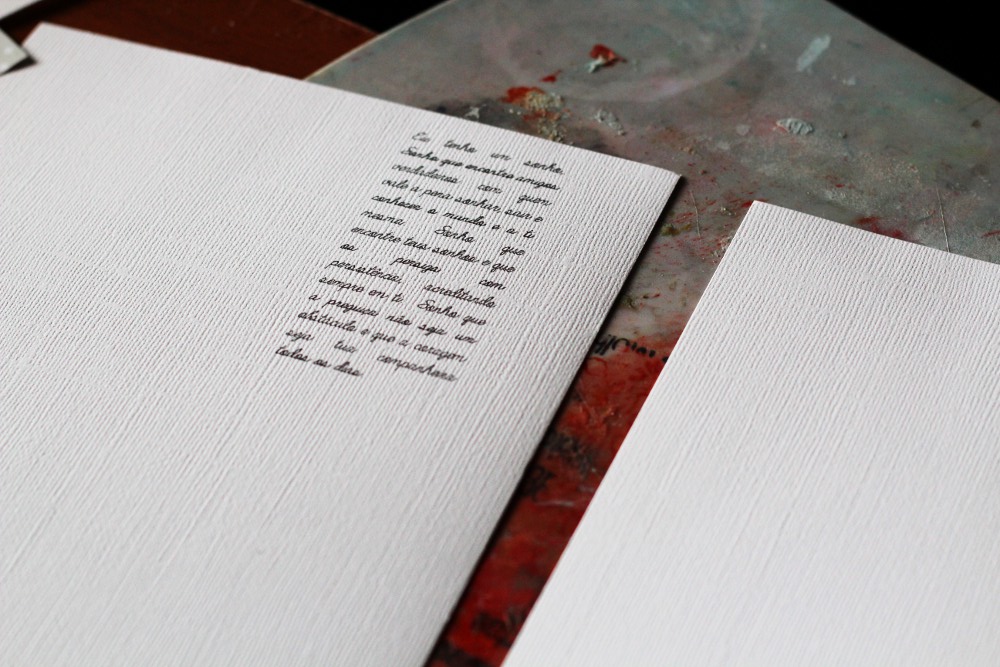 Eu tenho um sonho.
Sonho que encontro amigos
verdadeiros com quem
vale a pena sonhar, sair e
conhecer o mundo e a ti
mesma. Sonho que
encontre teus sonhos e que
os persiga com
persistência, acreditando
sempre em ti. Sonho que
a preguiça não seja um
obstáculo e que a coragem
seja tua companheira
todos os dias.